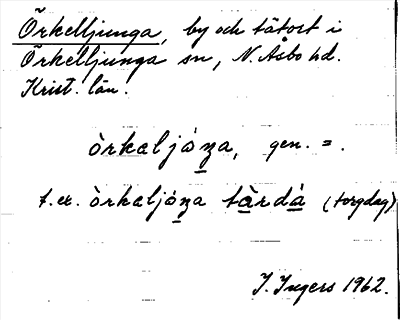 Örkelljunga, by och tätort i
Örkelljunga sn, N. Åsbo hd.
Krist. län.
òrkaljóṉa, gen. =.
t. ex. òrkaljóṉa tàrdá (torgdag)
I. Ingers 1962.